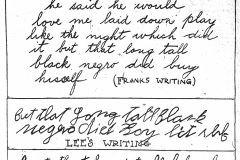 he said he would
love me laid down play
like the night witch did
it but that long tall
black negro did buy
hisself (FRANKS WRITING)
But that Long tall Black
negro did Boy hit slef
LEE'S WRITING